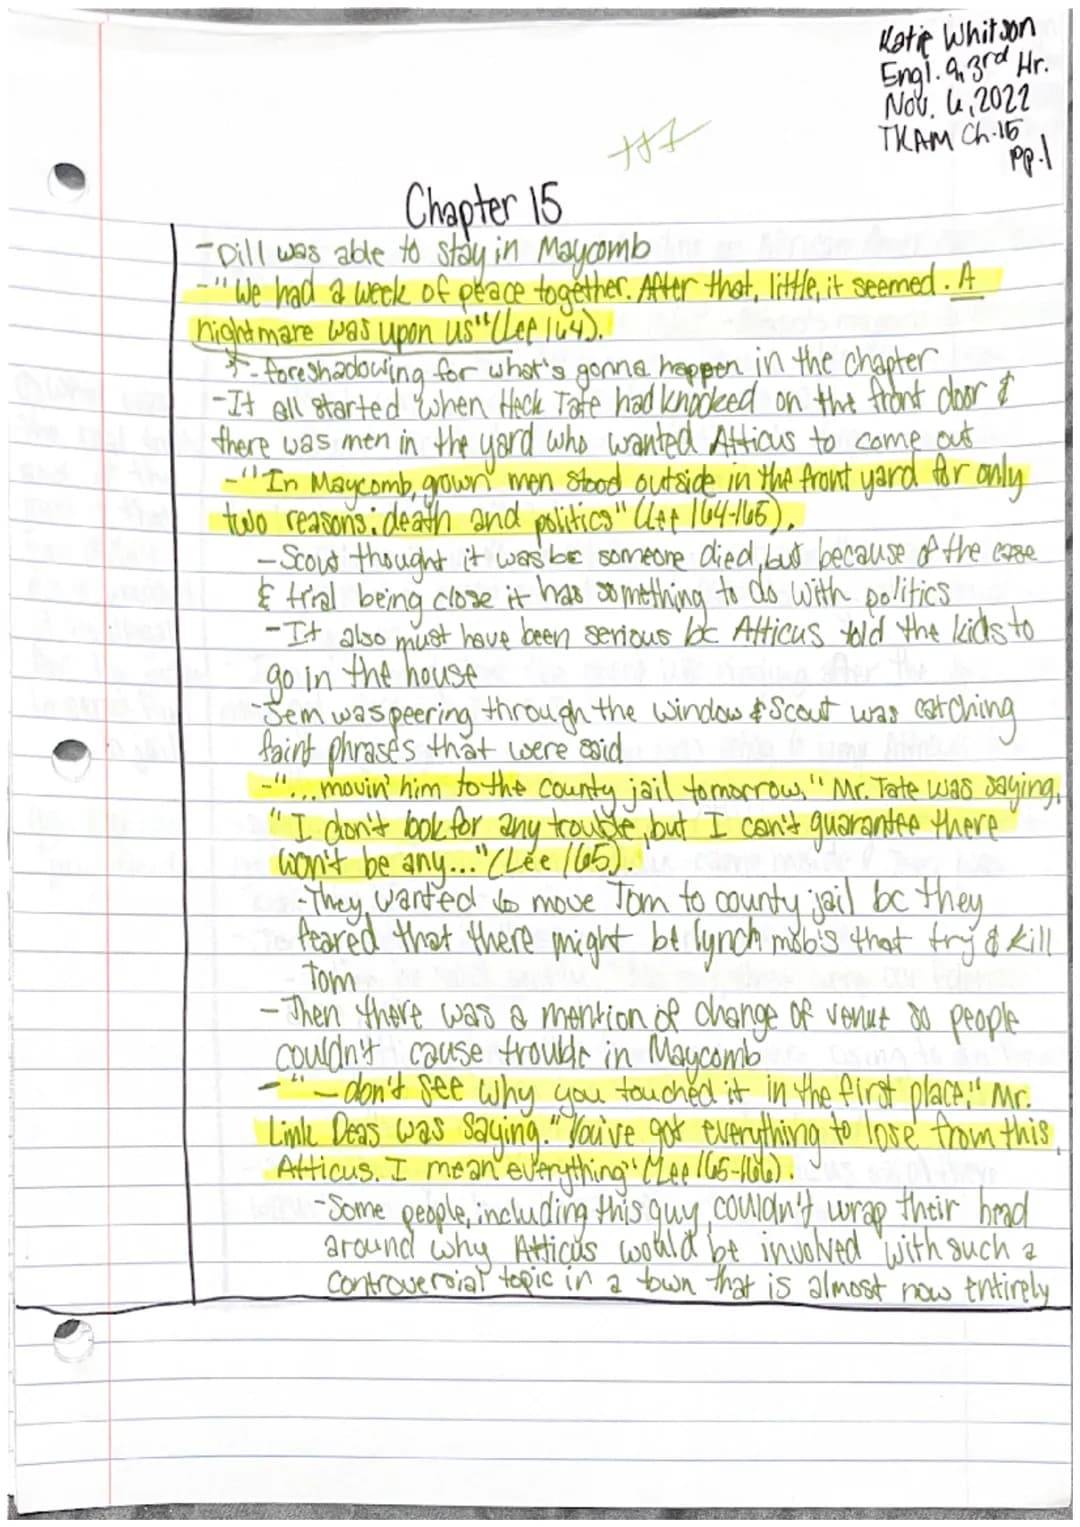 Katie Whitson
Engl. 9, 3rd Hr.
Nov. 6, 2022
TKAM Ch. 15
pp. 1
Chapter 15
- Dill was able to stay in Maycomb
- "We had a week of peace together. After that, little, it seemed. A
nightmare was upon us" (Lee 164).
* - foreshadowing for what's gonna happen in the chapter
- It all started when Heck Tate had knocked on the front door &
there was men in the yard who wanted Atticus to come out
- "In Maycomb, grown men stood outside in the front yard for only
two reasons: death and politics" (Lee 164-165).
- Scout thought it was bc someone died, but because of the case
& trial being close it has something to do with politics
- It also must have been serious bc Atticus told the kids to
go in the house
- Jem was peering through the window & Scout was catching
faint phrases that were said
- "...movin' him to the county jail tomorrow," Mr. Tate was saying,
"I don't look for any trouble, but I can't guarantee there
won't be any..." (Lee 165).
- They wanted to move Tom to county jail bc they
feared that there might be lynch mob's that try & kill
Tom
- Then there was a mention of change of venue so people
couldn't cause trouble in Maycomb
- "— don't see why you touched it in the first place," Mr.
Link Deas was saying. "You've got everything to lose from this,
Atticus. I mean everything" (Lee 165-166).
- Some people, including this guy, couldn't wrap their head
around why Atticus would be involved with such a
controversial topic in a town that is almost now entirely